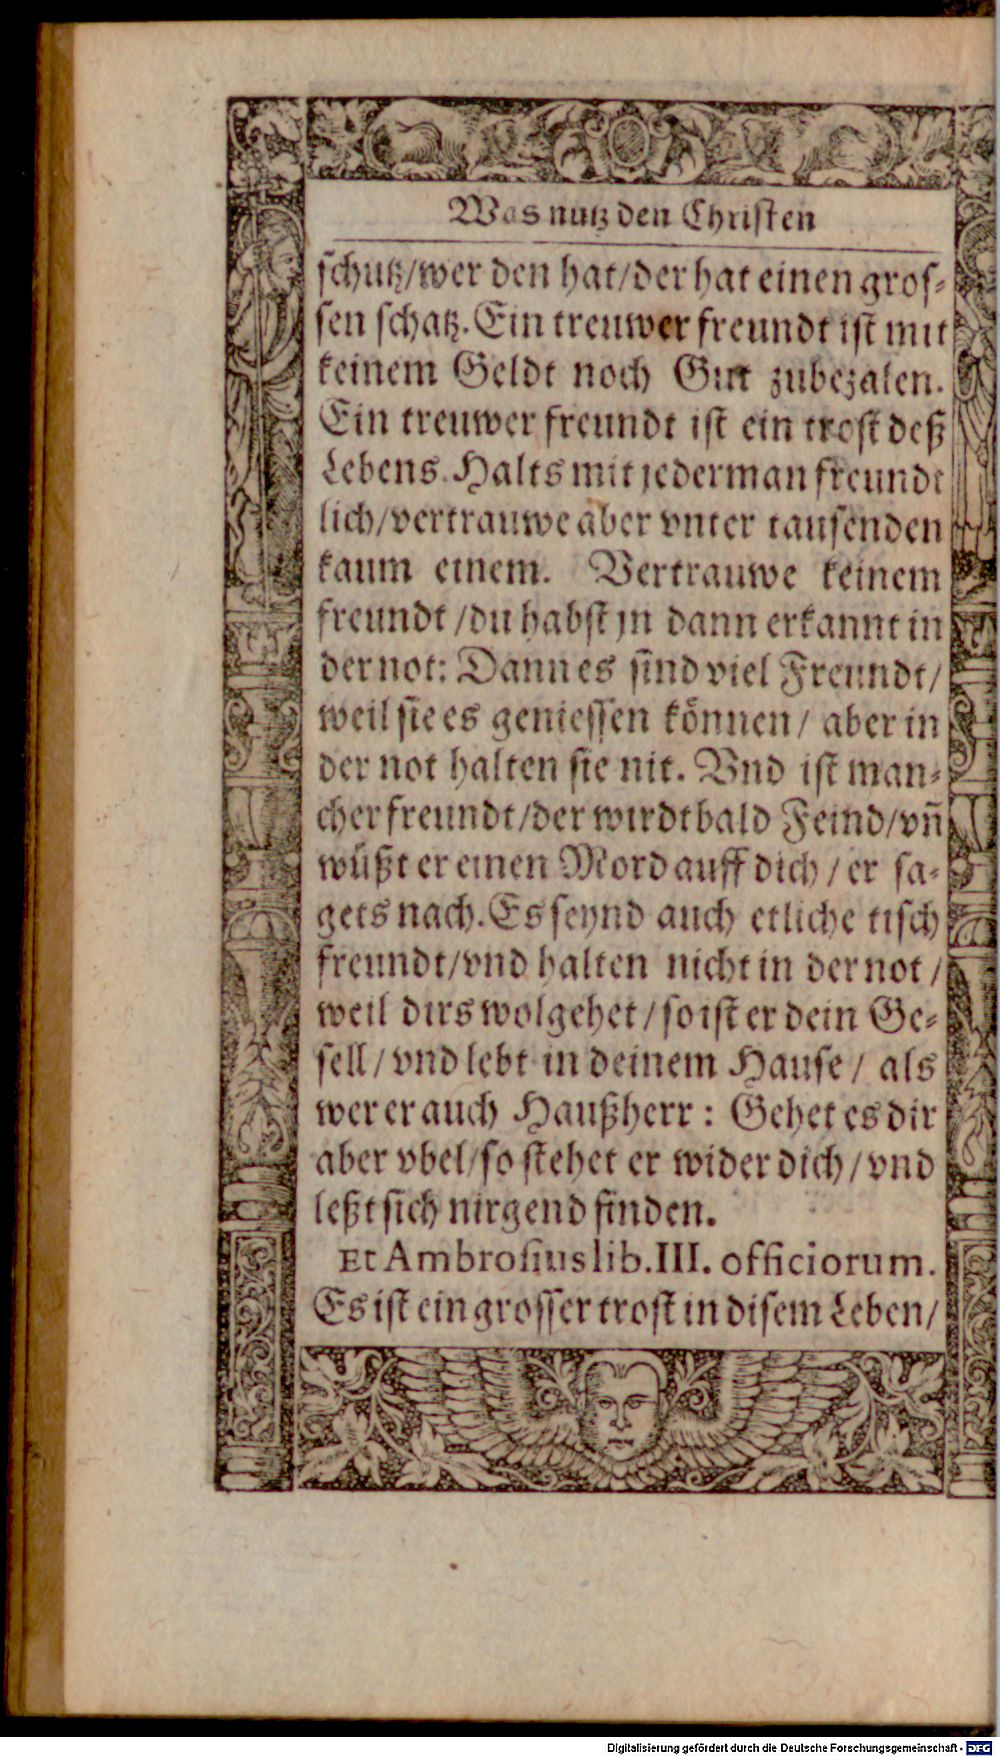 Was nutz den Christen
schutz/wer den hat/der hat einen gros-
sen schatz. Ein treuwer freundt ist mit
keinem Geldt noch Gut zubezalen.
Ein treuwer freundt ist ein trost deß
Lebens. Halts mit jederman freundt
lich/vertrauwe aber vnter tausenden
kaum einem. Vertrauwe keinem
freundt/du habst jn dann erkannt in
der not: Dann es sind viel Freundt/
weil sie es geniessen können/ aber in
der not halten sie nit. Vnd ist man-
cher freundt/der wirdt bald Feind/vñ
wüßt er einen Mord auff dich/er sa-
gets nach. Es seynd auch etliche tisch
freundt/vnd halten nicht in der not/
weil dirs wolgehet/so ist er dein Ge-
sell/vnd lebt in deinem Hause/ als
wer er auch Haußherr: Gehet es dir
aber vbel/so stehet er wider dich/vnd
leßt sich nirgend finden.
Et Ambrosius lib. III. officiorum.
Es ist ein grosser trost in disem Leben/
Digitalisierung gefördert durch die Deutsche Forschungsgemeinschaft - DFG